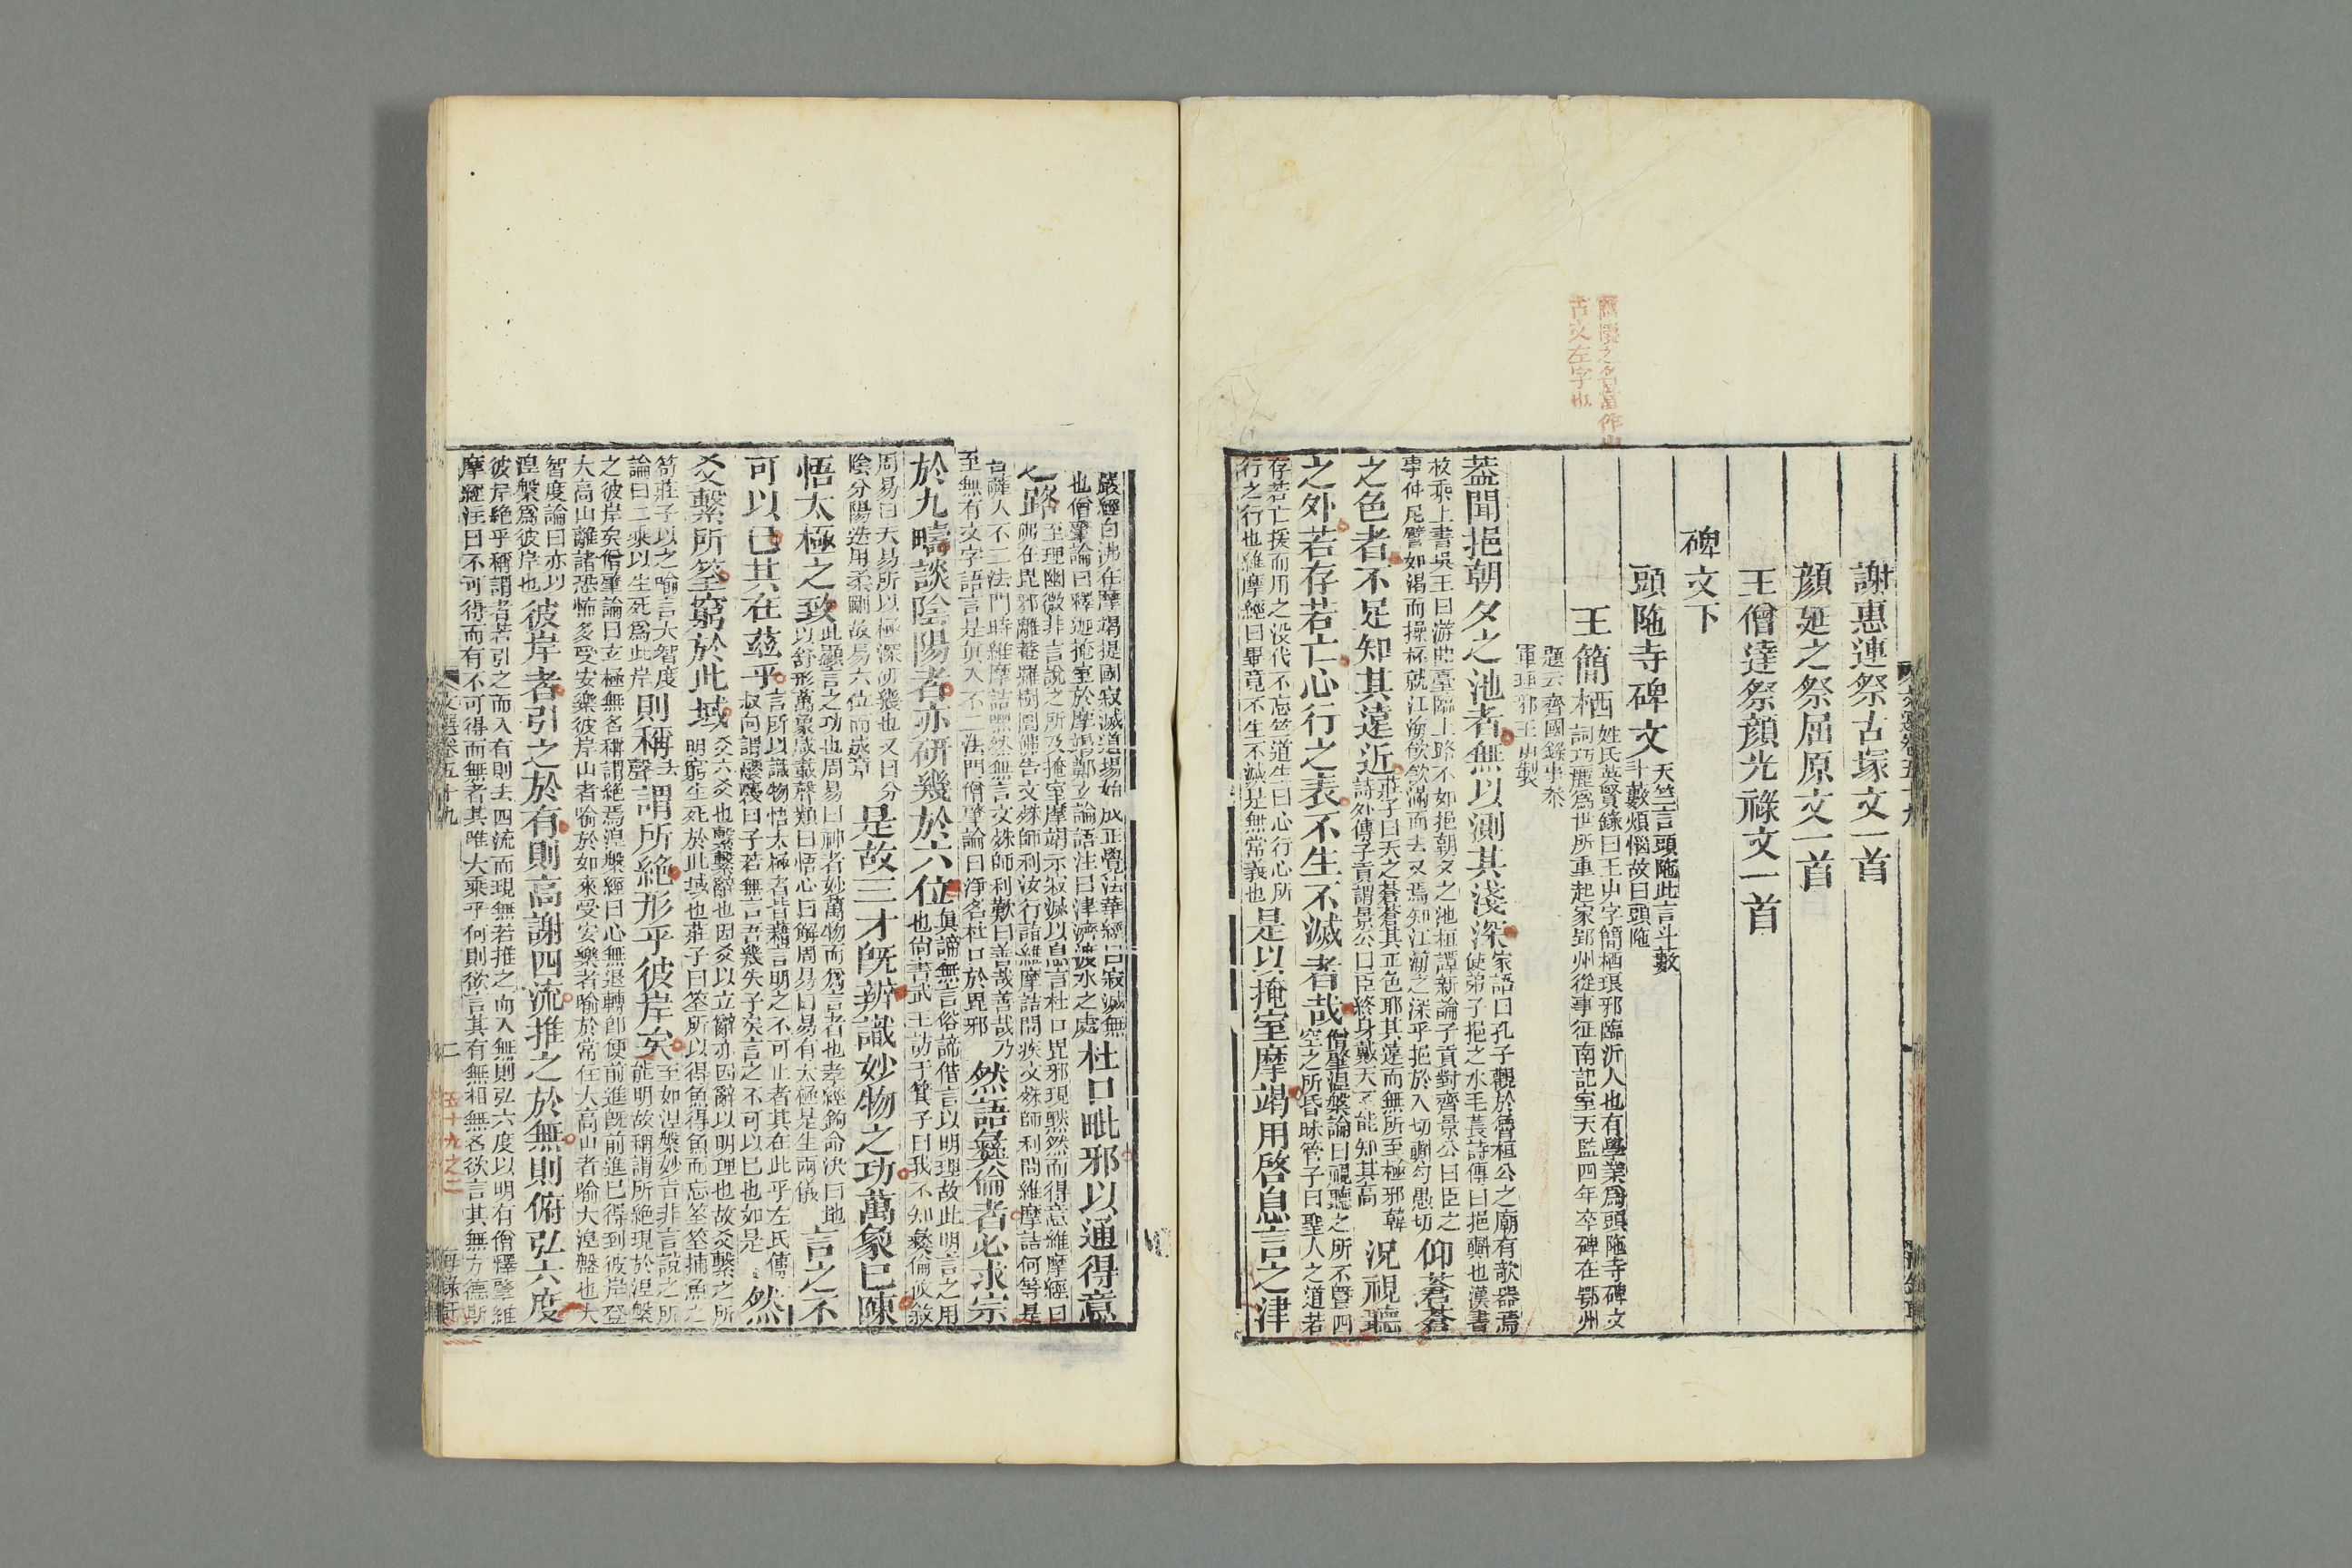 謝惠連祭古塚文一首
顔延之祭屈原文一首
王僧達祭顔光祿文一首
碑文下
頭陁寺碑文天竺言頭陁此言斗藪
斗藪煩惱故曰頭陁
王簡栖姓氏英賢錄曰王屮字簡栖琅邪臨沂人也有學業爲頭陁寺碑文
詞巧麗爲世所重起家郢州從事征南記室天監四年卒碑在鄂州
題云齊國錄事參
軍琅邪王屮製
葢聞挹朝夕之池者無以測其淺深家語曰孔子觀於魯桓公之廟有欹器焉
使弟子挹之水毛萇詩傳曰挹㪺也漢書
枚乘上書吳王曰游曲臺臨上路不如挹朝夕之池桓譚新論子貢對齊景公曰臣之
事仲尼譬如渴而操杯就江海飲飲滿而去又焉知江海之深乎挹於入切㪺勾愚切
仰蒼蒼
之色者不足知其遠近莊子曰天之蒼蒼其正色耶其遠而無所至極邪韓
詩外傳子貢謂景公曰臣終身戴天不能知其高
況視聽
之外若存若亡心行之表不生不滅者哉僧肇涅槃論曰視聽之所不曁四
空之所昏昧管子曰聖人之道若
存若亡援而用之沒代不忘竺道生曰心行心所
行之行也維摩經曰畢竟不生不滅是無常義也
是以掩室摩竭用啓息言之津
嚴經曰沸在摩竭提國寂滅道場始成正覺法華經曰寂滅無
也僧肇論曰釋迦掩室於摩竭鄭玄論語注曰津濟渡水之處
杜口毗邪以通得意
之路至理幽微非言說之所及掩室摩竭示寂滅以息言杜口毘邪現黙然而得意維摩經曰
佛在毘邪離菴羅樹園佛告文殊師利汝行詣維摩詰問疾文殊師利問維摩詰何等是
菩薩入不二法門時維摩詰黙然無言文殊師利歎曰善哉善哉乃
至無有文字語言是眞入不二法門僧肇論曰淨名杜口於毘邪
然語彝倫者必求宗
於九疇談陰陽者亦研幾於六位眞諦無言俗諦借言以明理故此明言之用
也尚書武王訪于箕子曰我不知彝倫攸敘
周易曰夫易所以極深研幾也又曰分
陰分陽迭用柔剛故易六位而成章
是故三才旣辨識妙物之功萬象已陳
悟太極之致此顯言之功也周易曰神者妙萬物而爲言者也孝經鉤命決曰地
以舒形萬象咸載聲類曰悟心曰解周易曰易有太極是生兩儀
言之不
可以已其在兹乎言所以識物悟太極者皆藉言明之不可止者其在此乎左氏傳
叔向謂鬷蔑曰子若無言吾幾失子矣言之不可以已也如是
然
爻繫所筌窮於此域爻六爻也繫繫辭也因爻以立辭亦因辭以明理也故爻繫之所
明窮生死於此域也莊子曰筌所以得魚得魚而忘筌筌捕魚之
笱莊子以之喻言大智度
論曰二乘以生死爲此岸
則稱聲謂所絶形乎彼岸矣至如涅槃妙旨非言說之所
能明故稱謂所絶現於涅槃
之彼岸矣僧肇論曰玄極無名稱謂絶焉涅槃經曰心無退轉卽便前進旣前進已得到彼岸登
大高山離諸恐怖多受安樂彼岸山者喻於如來受安樂者喻於常住大高山者喻大涅槃也大
智度論曰亦以
涅槃爲彼岸也
彼岸者引之於有則高謝四流推之於無則俯弘六度
彼岸絶乎稱謂者若引之而入有則去四流而現無若推之而入無則弘六度以明有僧釋肇維
摩經注曰不可得而有不可得而無者其唯大乘乎何則欲言其有無相無名欲言其無方德斯
文選卷五十九
二
五十九之二